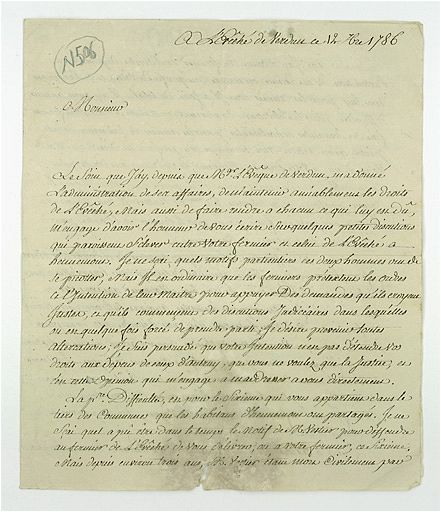 N 506
A L'Evêché de Verdun ce 12 Xbre 1786
Monsieur
Le Soin que J'ay, depuis que Mgr. L'Evêque de Verdun, m'a donné
L'administration de ses affaires, de maintenir amiablement les droits
de L'Evêché, Mais aussi de faire rendre a chacun ce qui luy en dû,
M'engage d'avoir l'honneur de vous écrire Sur quelques petites discutions
qui paroissent S'élever entre Votre fermier et celui de L'Evêché a
. Je ne sai, quels motifs particuliers ces deux hommes ont de
se , Mais Il en ordinaire que les fermiers prétextent les ordres
et l'Intention de leur Maitre pour appuyer Des demandes qu'ils croyent
Justes, et qu'ils commencent des discutions Judiciaires dans lesquelles
on en quelque fois forcé de prendre part; Je désire prévenir toutes
altercations; Je suis persuadé que votre Intention n'en pas d'étendre vos
droits aux dépens de ceux d'autruy, que vous ne voulez que la Justice, et
c'en cette opinion qui m'engage a m'adresser a vous directement.
La pre. Difficulté, en pour le Sixieme qui vous appartient dans le
tiers des Communes que les habitans d' ont partagés. Je ne
Sai quel a pû être dans le temps le Motif de M. pour deffendre
au fermier de L'Evêché de vous délivrer, ou a votre fermier, ce Sixieme.
Mais depuis environ trois ans, M. étant mort Civilement par